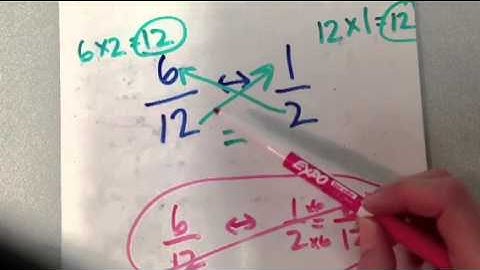 6×2=12 12×1=12
6/12 ↔ 1/2
=
EXPO
6/12 ↔ 1×6/2×6 =
12